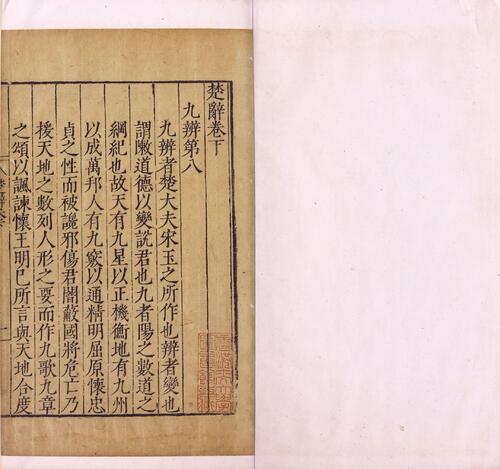 楚辭卷下
九辨第八
九辨者楚大夫宋玉之所作也辨者變也
謂敶道德以變說君也九者陽之數道之
綱紀也故天有九星以正機衡地有九州
以成萬邦人有九竅以通精明屈原懷忠
貞之性而被讒邪傷君闇蔽國將危亡乃
援天地之數列人形之要而作九歌九章
之頌以諷諫懷王明已所言與天地合度